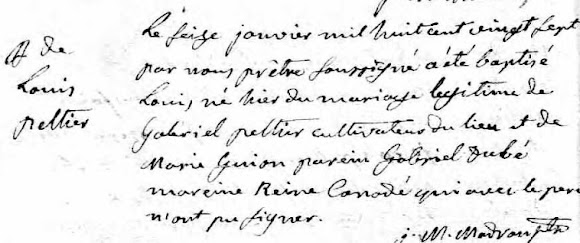 B de
Louis
peltier
Le seize janvier mil huit cent vingt sept
par nous prêtre soussigné a été baptisé
Louis né hier du mariage legitime de
Gabriel peltier cultivateur du lieu et de
Marie Guion parein Gabriel Dubé
mareine Reine Canadé qui avec le pere
n'ont pu signer.
j. M. Madran ptr